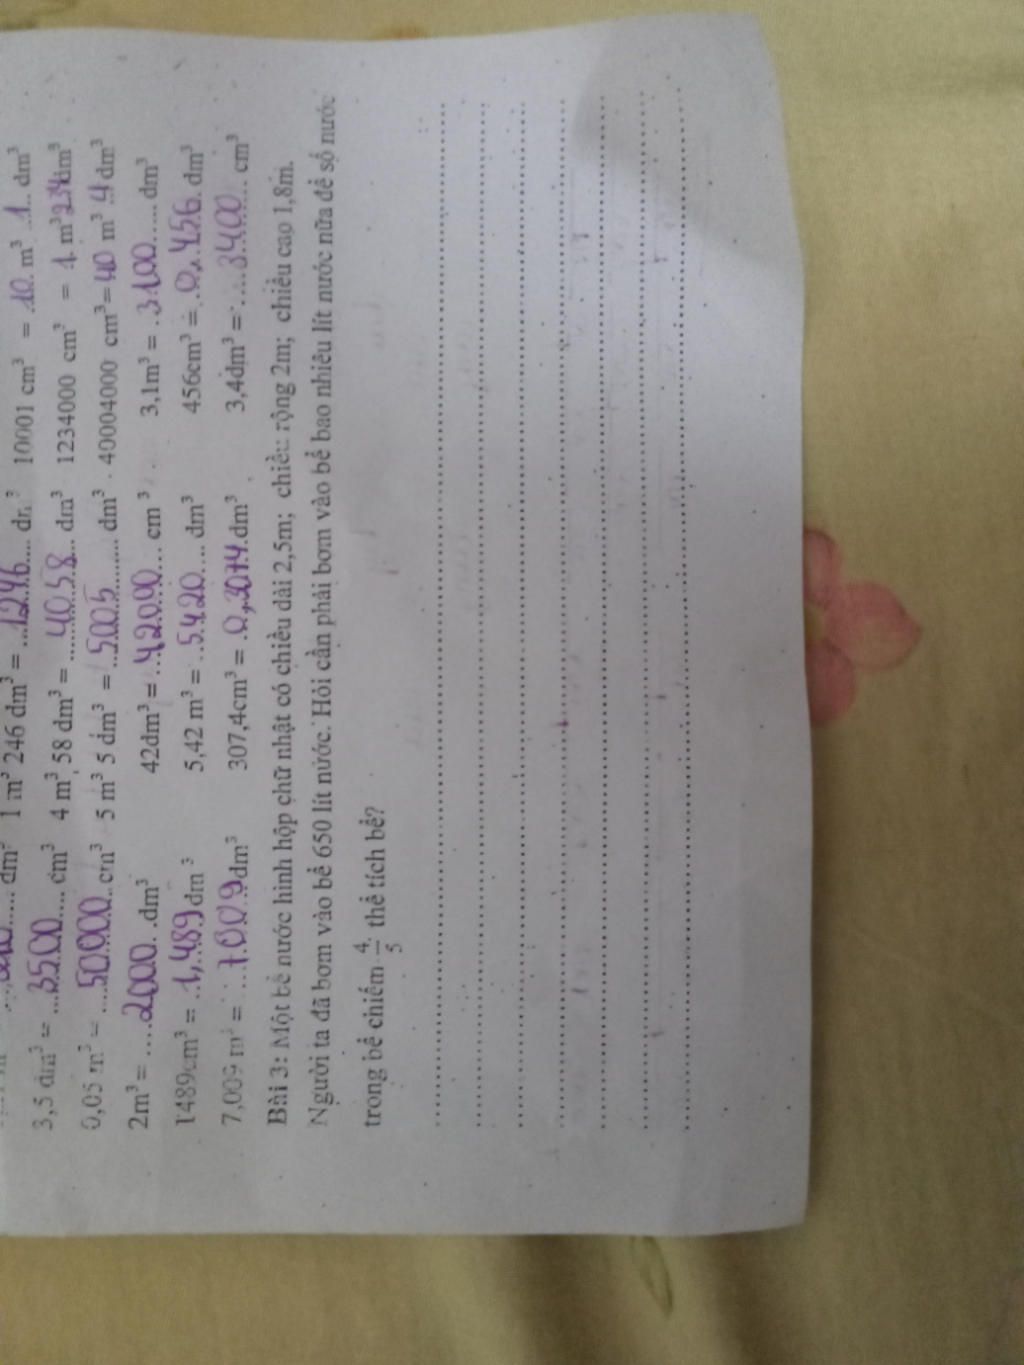 dm³ 1 m³ 246 dm³ = ...1246.... dm³ 10001 cm³ = .10. m³ ..1.. dm³
3,5 dm³ = ...3500.... cm³ 4 m³ 58 dm³ = ......4058... dm³ 1234000 cm³ = .1. m³ 234 dm³
0,05 m³ = .....50000..cm³ 5 m³ 5 dm³ = ...5005....... dm³ 40004000 cm³ = 40 m³ ..4 dm³
2m³ = ....2000...dm³ 42dm³ = ...42000... cm³ 3,1m³ = .3100...... dm³
1489cm³ = ..1,489 dm³ 5,42 m³ = ..5420.... dm³ 456cm³ = ..0,456. dm³
7,009 m³ = ....7009dm³ 307,4cm³ = .0,3074.dm³ 3,4dm³ = .....3400...... cm³
Bài 3: Một bể nước hình hộp chữ nhật có chiều dài 2,5m; chiều rộng 2m; chiều cao 1,8m.
Người ta đã bơm vào bể 650 lít nước. Hỏi cần phải bơm vào bể bao nhiêu lít nước nữa để số nước
trong bể chiếm 4/5 thể tích bể?